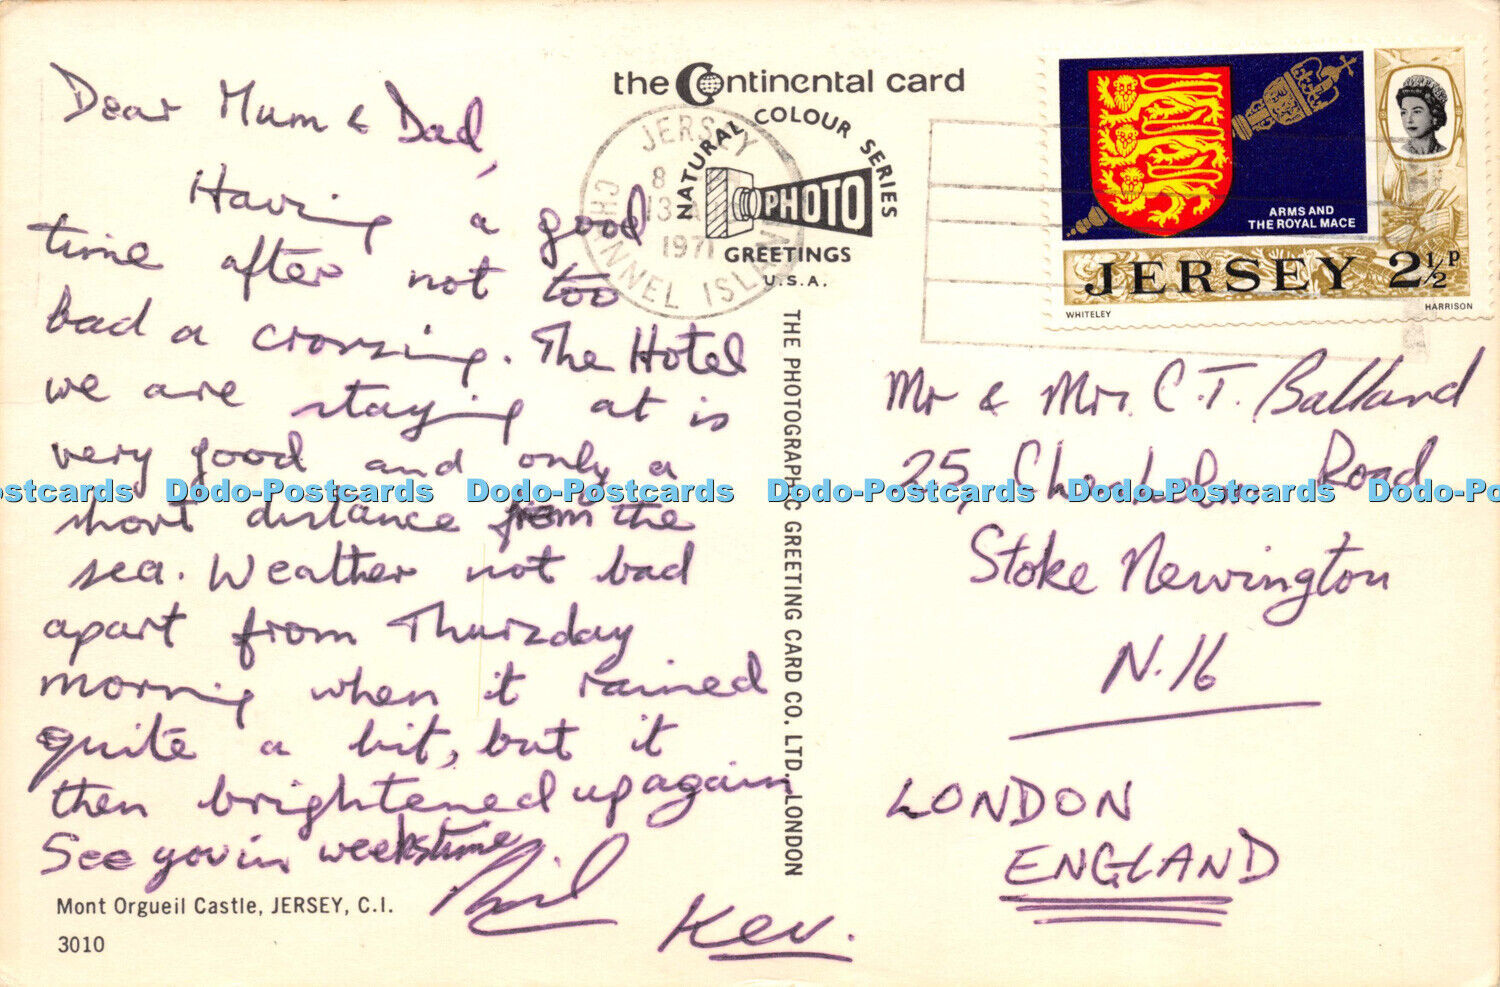 Dear Mum & Dad,
Having a good
time after not too
bad a crossing. The Hotel
we are staying at is
very good and only a
short distance from the
sea. Weather not bad
apart from Thursday
morning when it rained
quite a bit, but it
then brightened up again
See you in weekstime
Kev.
Mont Orgueil Castle, JERSEY, C.I.
3010
the Continental card
NATURAL COLOUR SERIES
PHOTO
GREETINGS
U.S.A.
JERSEY
8
13
1971
CHANNEL ISLAN
THE PHOTOGRAPHIC GREETING CARD CO. LTD. LONDON
ARMS AND
THE ROYAL MACE
JERSEY 2½P
WHITELEY
HARRISON
Mr & Mrs. C.T. Balland
25, Road
Stoke Newington
N.16
LONDON
ENGLAND
Dodo-Postcards Dodo-Postcards Dodo-Postcards Dodo-Postcards Dodo-Postcards